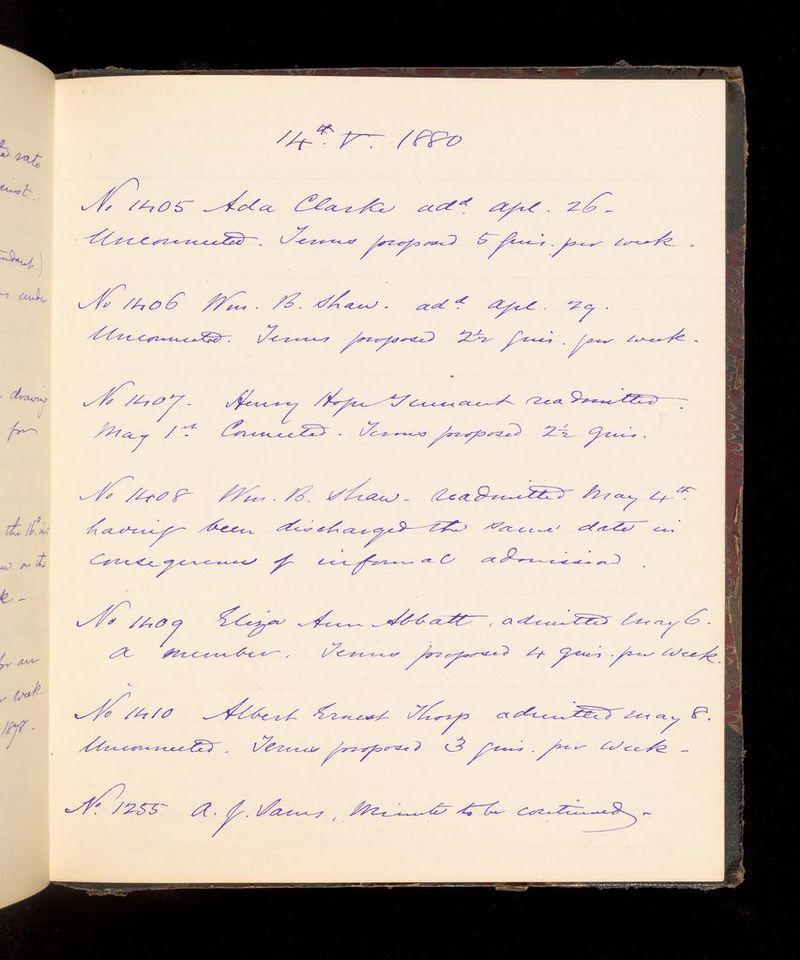 te rate
inst.
endant)
rs under
drawing
for
the 16th inst
on the
k -
for an
r week.
1878.
14th. V. 1880
No 1405 Ada Clarke add. apl. 26 -
Unconnected. Terms proposed 5 guis. per week.
No 1406 Wm. B. Shaw. add. apl. 29.
Unconnected. Terms proposed 2½ guis. per week.
No 1407. Henry Hope Tennant readmitted.
May 1st. Connected. Terms proposed 2½ guis.
No 1408 Wm. B. Shaw - readmitted May 4th.
having been discharged the same date in
consequence of informal admission.
No 1409 Eliza Ann Abbatt, admitted May 6.
a member. Terms proposed 4 guis. per week.
No 1410 Albert Ernest Thorp admitted May 8.
Unconnected. Terms proposed 3 guis. per week -
No. 1255 A. J. Minute to be continued -